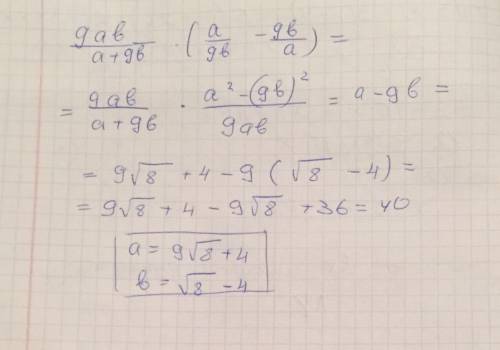 9ab/(a+9b) · (a/9b - 9b/a) =
= 9ab/(a+9b) · (a² - (9b)²)/9ab = a - 9b =
= 9√8 + 4 - 9 (√8 - 4) =
= 9√8 + 4 - 9√8 + 36 = 40
a = 9√8 + 4
b = √8 - 4